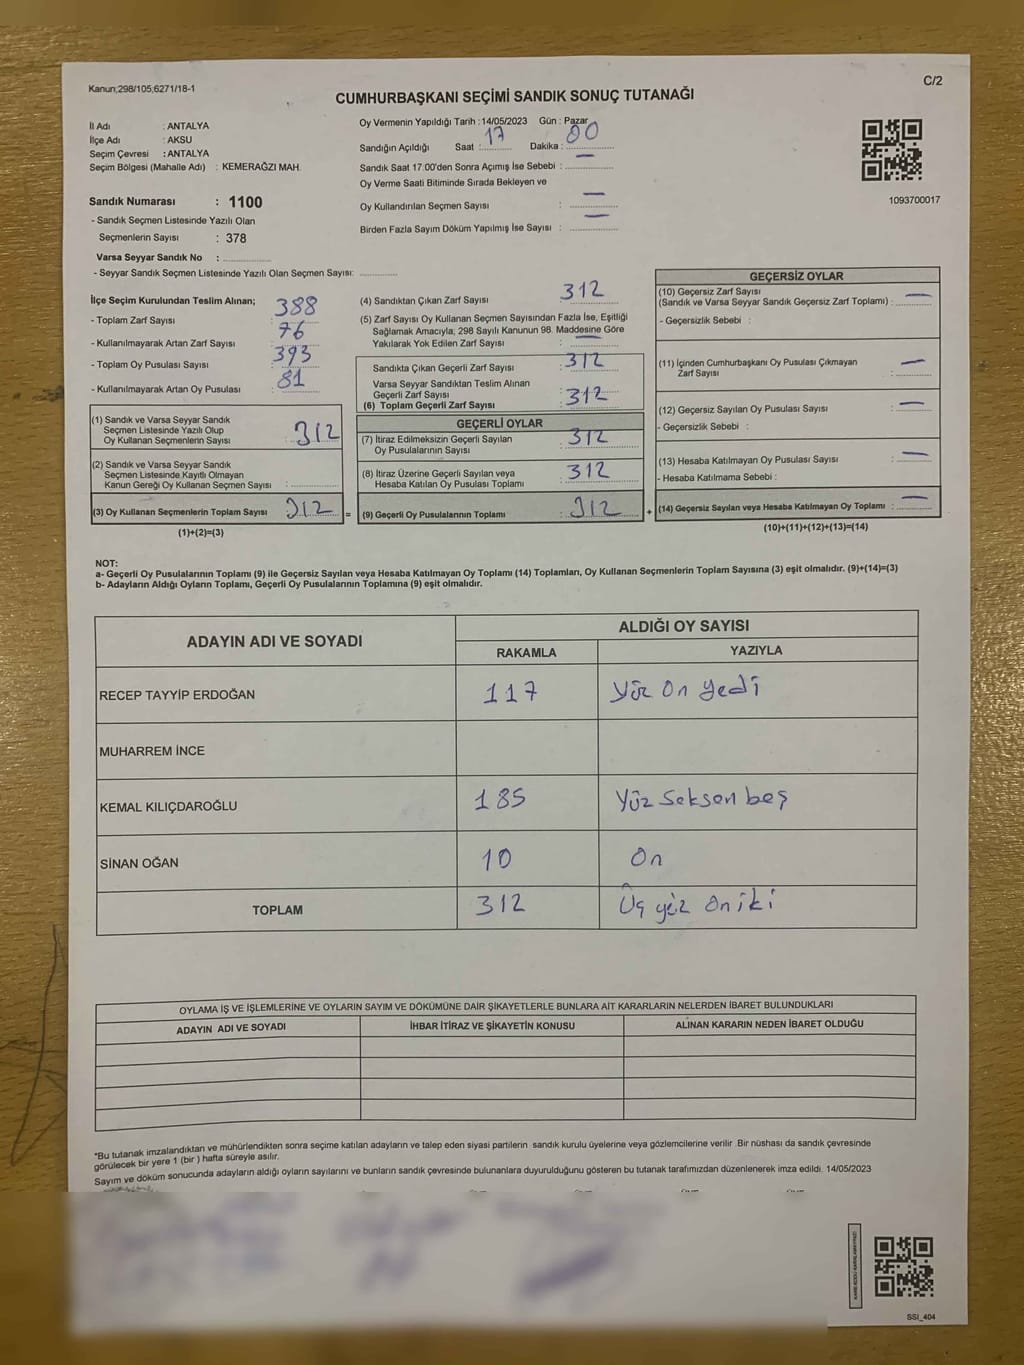 Kanun;298/105;6271/18-1
C/2
CUMHURBAŞKANI SEÇİMİ SANDIK SONUÇ TUTANAĞI
İl Adı : ANTALYA
İlçe Adı : AKSU
Seçim Çevresi : ANTALYA
Seçim Bölgesi (Mahalle Adı) : KEMERAĞZI MAH.
Sandık Numarası : 1100
- Sandık Seçmen Listesinde Yazılı Olan
Seçmenlerin Sayısı : 378
Varsa Seyyar Sandık No :
- Seyyar Sandık Seçmen Listesinde Yazılı Olan Seçmen Sayısı:
Oy Vermenin Yapıldığı Tarih : 14/05/2023 Gün : Pazar
Sandığın Açıldığı Saat : 17 Dakika : 00
Sandık Saat 17:00'den Sonra Açımış İse Sebebi : —
Oy Verme Saati Bitiminde Sırada Bekleyen ve
Oy Kullandırılan Seçmen Sayısı : —
Birden Fazla Sayım Döküm Yapılmış İse Sayısı : —
1093700017
İlçe Seçim Kurulundan Teslim Alınan;
- Toplam Zarf Sayısı 388
- Kullanılmayarak Artan Zarf Sayısı 76
- Toplam Oy Pusulası Sayısı 393
- Kullanılmayarak Artan Oy Pusulası 81
(1) Sandık ve Varsa Seyyar Sandık
Seçmen Listesinde Yazılı Olup
Oy Kullanan Seçmenlerin Sayısı : 312
(2) Sandık ve Varsa Seyyar Sandık
Seçmen Listesinde Kayıtlı Olmayan
Kanun Gereği Oy Kullanan Seçmen Sayısı :
(3) Oy Kullanan Seçmenlerin Toplam Sayısı 312 =
(1)+(2)=(3)
(4) Sandıktan Çıkan Zarf Sayısı 312
(5) Zarf Sayısı Oy Kullanan Seçmen Sayısından Fazla İse, Eşitliği
Sağlamak Amacıyla, 298 Sayılı Kanunun 98. Maddesine Göre
Yakılarak Yok Edilen Zarf Sayısı : —
Sandıkta Çıkan Geçerli Zarf Sayısı : 312
Varsa Seyyar Sandıktan Teslim Alınan
Geçerli Zarf Sayısı
(6) Toplam Geçerli Zarf Sayısı : 312
GEÇERLİ OYLAR
(7) İtiraz Edilmeksizin Geçerli Sayılan
Oy Pusulalarının Sayısı : 312
(8) İtiraz Üzerine Geçerli Sayılan veya
Hesaba Katılan Oy Pusulası Toplamı : 312
(9) Geçerli Oy Pusulalarının Toplamı : 312 +
GEÇERSİZ OYLAR
(10) Geçersiz Zarf Sayısı
(Sandık ve Varsa Seyyar Sandık Geçersiz Zarf Toplamı) : —
- Geçersizlik Sebebi :
(11) İçinden Cumhurbaşkanı Oy Pusulası Çıkmayan
Zarf Sayısı : —
(12) Geçersiz Sayılan Oy Pusulası Sayısı : —
- Geçersizlik Sebebi :
(13) Hesaba Katılmayan Oy Pusulası Sayısı : —
- Hesaba Katılmama Sebebi :
(14) Geçersiz Sayılan veya Hesaba Katılmayan Oy Toplamı : —
(10)+(11)+(12)+(13)=(14)
NOT:
a- Geçerli Oy Pusulalarının Toplamı (9) ile Geçersiz Sayılan veya Hesaba Katılmayan Oy Toplamı (14) Toplamları, Oy Kullanan Seçmenlerin Toplam Sayısına (3) eşit olmalıdır. (9)+(14)=(3)
b- Adayların Aldığı Oyların Toplamı, Geçerli Oy Pusulalarının Toplamına (9) eşit olmalıdır.
ADAYIN ADI VE SOYADI
ALDIĞI OY SAYISI
RAKAMLA YAZIYLA
RECEP TAYYİP ERDOĞAN 117 Yüz on yedi
MUHARREM İNCE
KEMAL KILIÇDAROĞLU 185 Yüz Seksen beş
SİNAN OĞAN 10 On
TOPLAM 312 Üç yüz on iki
OYLAMA İŞ VE İŞLEMLERİNE VE OYLARIN SAYIM VE DÖKÜMÜNE DAİR ŞİKAYETLERLE BUNLARA AİT KARARLARIN NELERDEN İBARET BULUNDUKLARI
ADAYIN ADI VE SOYADI İHBAR İTİRAZ VE ŞİKAYETİN KONUSU ALINAN KARARIN NEDEN İBARET OLDUĞU
*Bu tutanak imzalandıktan ve mühürlendikten sonra seçime katılan adayların ve talep eden siyasi partilerin sandık kurulu üyelerine veya gözlemcilerine verilir .Bir nüshası da sandık çevresinde
görülecek bir yere 1 (bir ) hafta süreyle asılır.
Sayım ve döküm sonucunda adayların aldığı oyların sayılarını ve bunların sandık çevresinde bulunanlara duyurulduğunu gösteren bu tutanak tarafımızdan düzenlenerek imza edildi. 14/05/2023
SSI_404